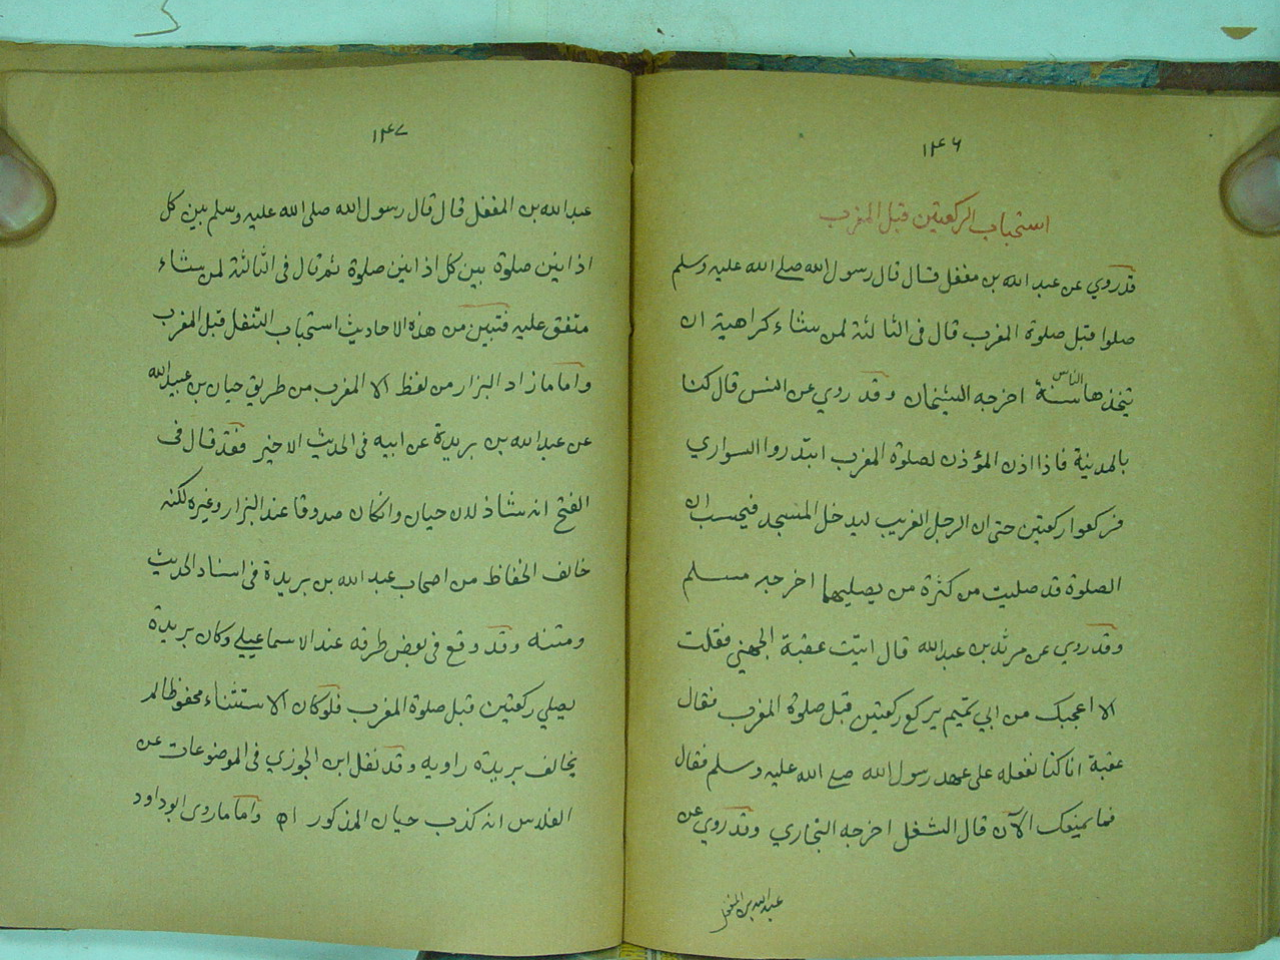 ١٣٤٦
استحباب الركعتين قبل المغرب
قد روي عن عبد الله بن مغفل قال قال رسول الله صلے الله عليه وسلم
صلوا قبل صلوة المغرب قال فى الثالثة لمن شاء كراهية ان
يتخذها الناس سنة اخرجه الشيخان وقد روي عن انس قال كنا
بالمدينة فاذا اذن المؤذن لصلوة المغرب ابتدروا السواري
فركعوا ركعتين حتى ان الرجل الغريب ليدخل المسجد فيحسب ان
الصلوة قد صليت من كثرة من يصليهما اخرجه مسلم
وقد روي عن مرثد بن عبد الله قال اتيت عقبة الجهني فقلت
الا اعجبك من ابي تميم يركع ركعتين قبل صلوة المغرب فقال
عقبة انا كنا نفعله على عهد رسول الله صلے الله عليه وسلم فقال
فما يمنعك الآن قال الشغل اخرجه البخاري وقد روي عن
عبد الله بن المغفل
١٣٤٧
عبد الله بن المغفل قال قال رسول الله صلى الله عليه وسلم بين كل
اذانين صلوة بين كل اذانين صلوة ثم قال فى الثالثة لمن شاء
متفق عليه فتبين من هذه الاحاديث استحباب التنفل قبل المغرب
واما ما زاد البزار من لفظ الا المغرب من طريق حيان بن عبيد الله
عن عبد الله بن بريدة عن ابيه فى الحديث الاخير فقد قال فى
الفتح انه شاذ لان حيان وانكان صدوقا عند البزار وغيره لكنه
خالف الحفاظ من اصحاب عبد الله بن بريدة فى اسناد الحديث
ومتنه وقد وقع فى بعض طرقه عند الاسماعيلے وكان بريدة
يصلي ركعتين قبل صلوة المغرب فلو كان الاستثناء محفوظا لم
يخالف بريدة راويه وقد نقل ابن الجوزي فى الموضوعات عن
الفلاس انه كذب حيان المذكور اه واما ما روى ابو داود